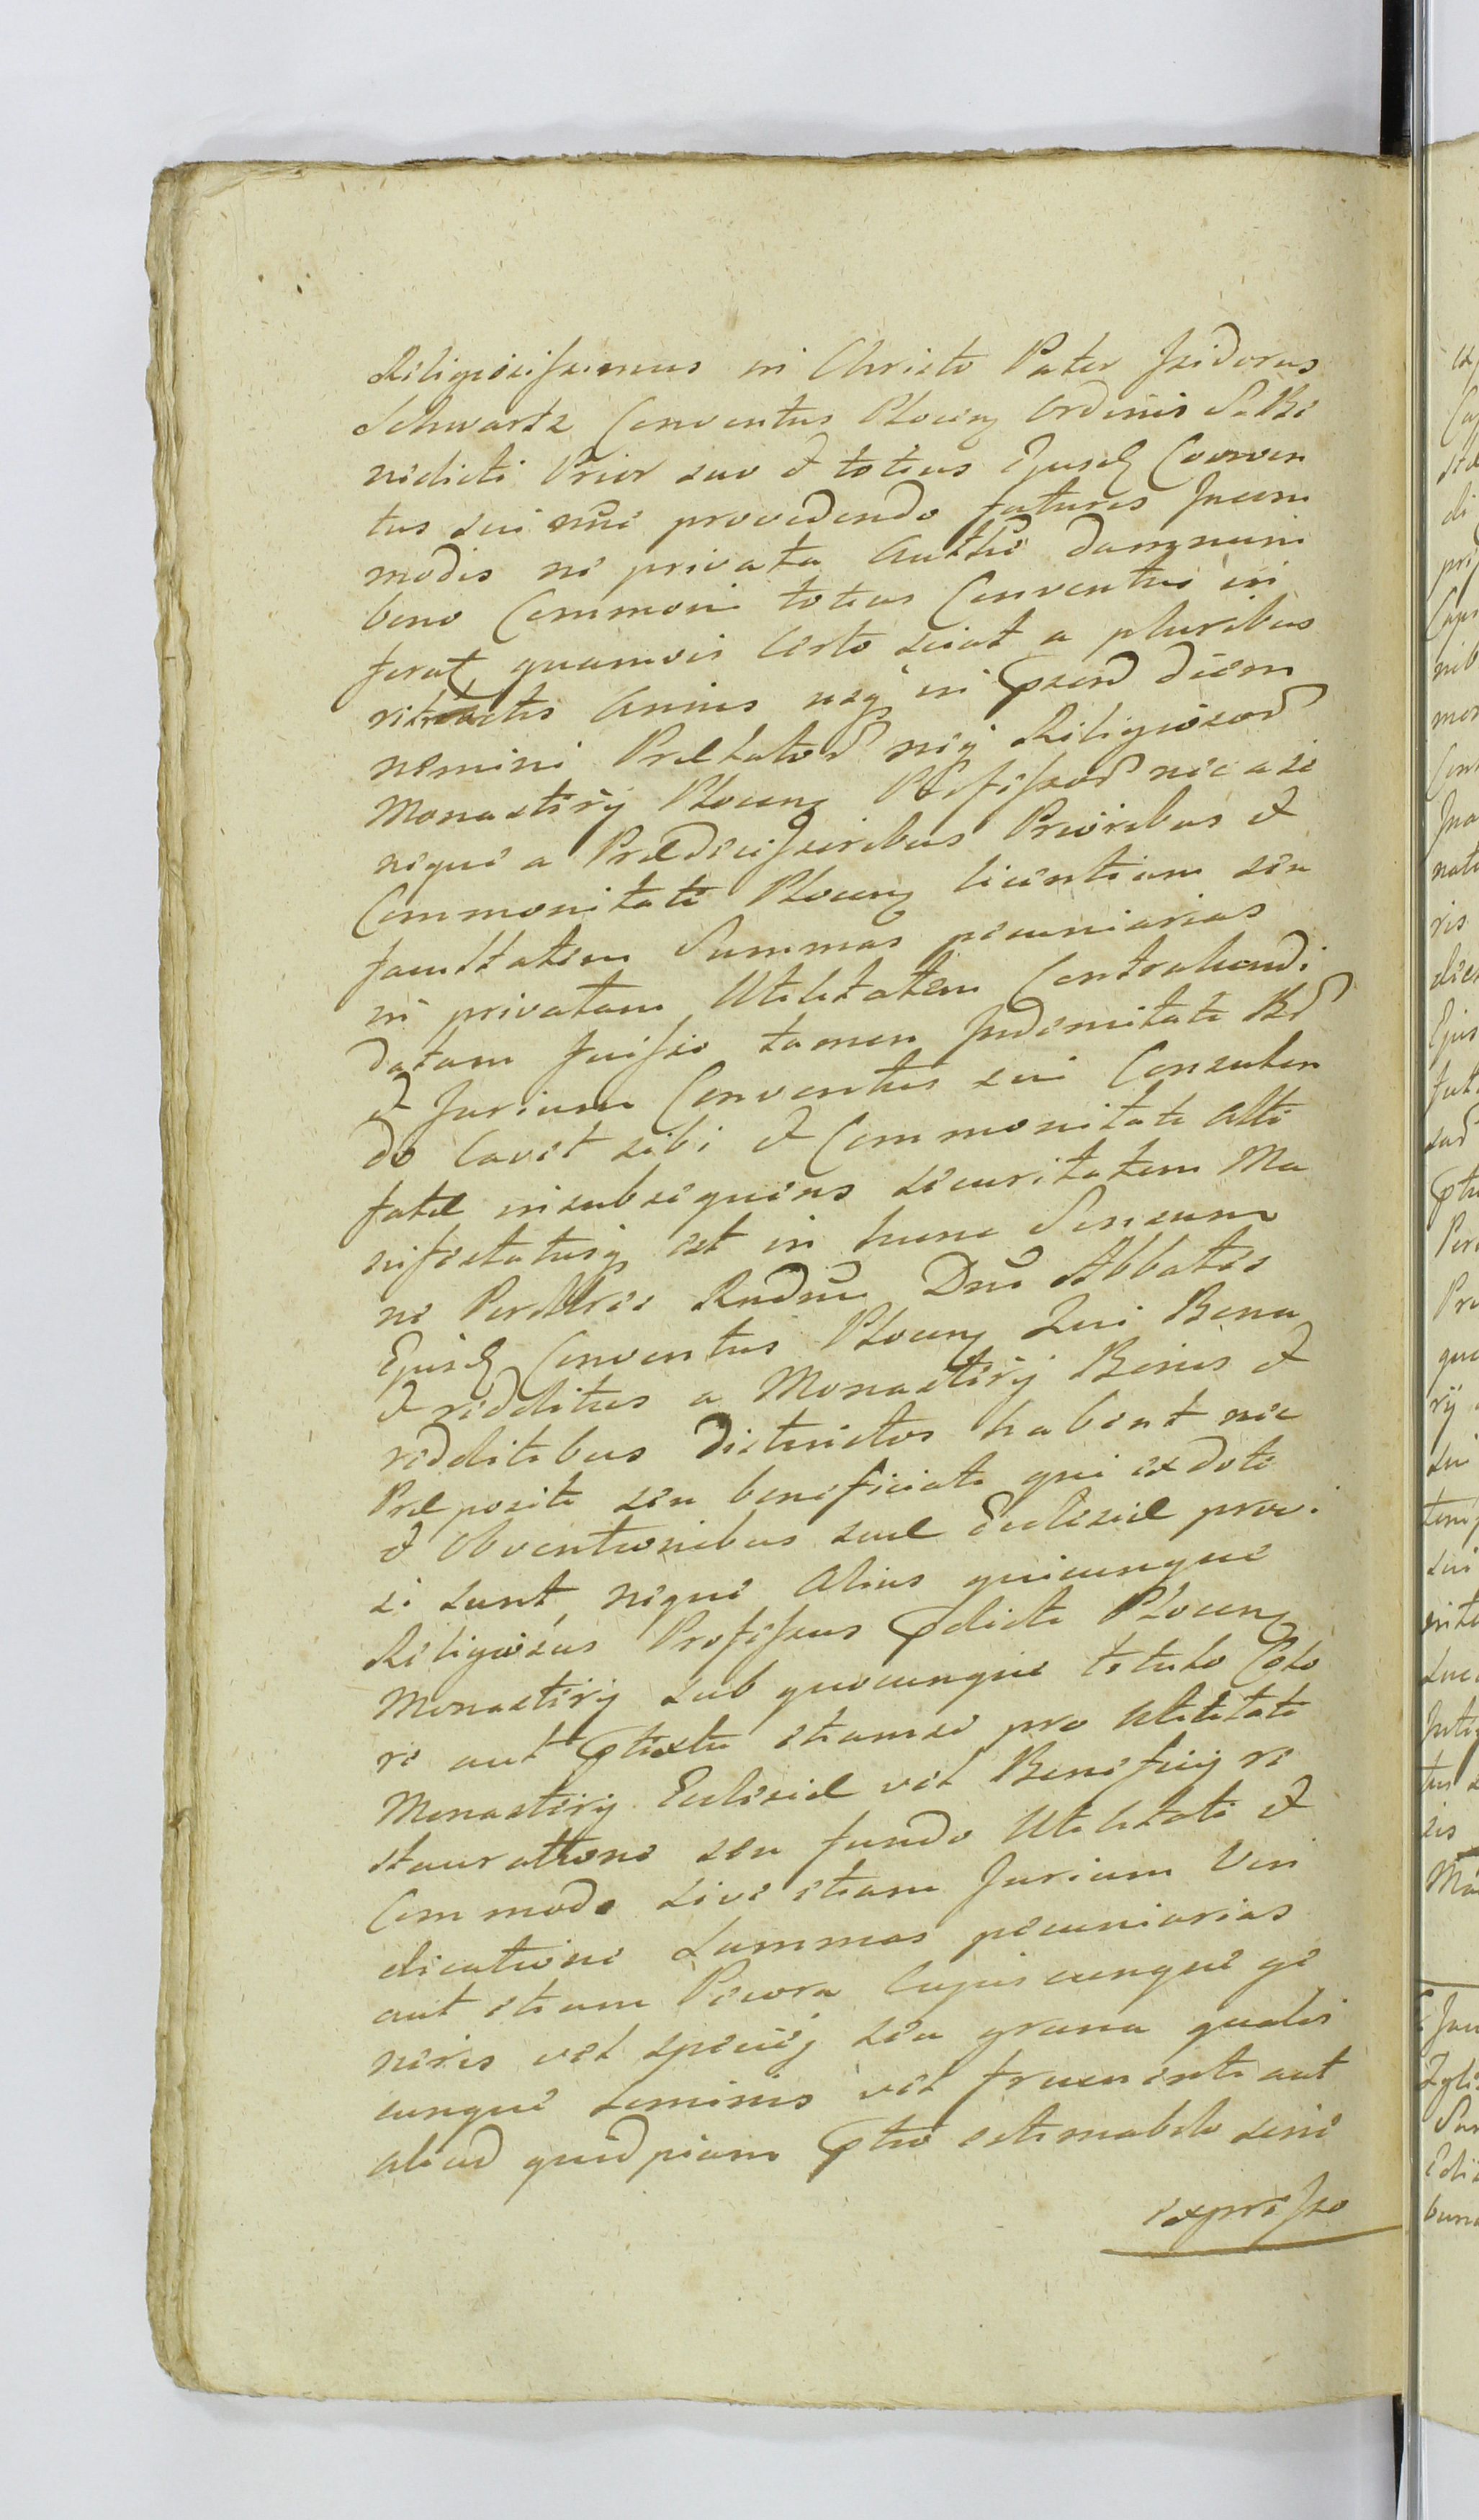 Religiosissimus in Christo Pater Isidorus
Schwartz Conventus Plocen Ordinis S. Be
nedicti Prior suo et totius Ejusd Conven
tus sui nne providendo futuris Incom
modis ne privata Autthe damnum
bono Commoni totius Conventus in
ferat, quamvis Certo sciat a pluribus
retroactis Annis usq in psend diem
nemini Prælator neq Religiosor
Monasterÿ Plocen Professor nec a se
neque a Prædecessoribus Prioribus et
Commonitate Plocen licentiam seu
facultatem Summas pecuniarias
in privatam Utilitatem Contrahendi
datam fuisse tamen Indemnitati Br
et Jurium Conventus sui Consulen
do Cavet sibi et Commonitati Atte
fatæ in subsequens securitatem Ma
nifestatusq est in hunc Sensum
ne Perillres Rndmi Dni Abbates
Ejusd Conventus Plocen Qui Bona
et redditus a Monasterÿ Bonis et
redditibus distinctos habent nec
Præpositi seu beneficiati qui ex dote
et Obventionibus suæ Ecclesiæ provi
si sunt, neque Alius quicunque
Religiosus Professus pdicti Plocen
Monasterÿ sub quocunque titulo Colo
re aut ptextu etiamsi pro Utilitate
Monasterÿ Ecclesiæ vel Beneficÿ re
stauratione seu fundo Utilitate et
Commodo sive etiam Jurium Vin
dicatione Summas pecuniarias
aut etiam Pecora Cujuscunque ge
neris vel speciej seu grana qualis
cunque seminis vel frumenti aut
aliud quidpiam ptio estimabile sine
expresso